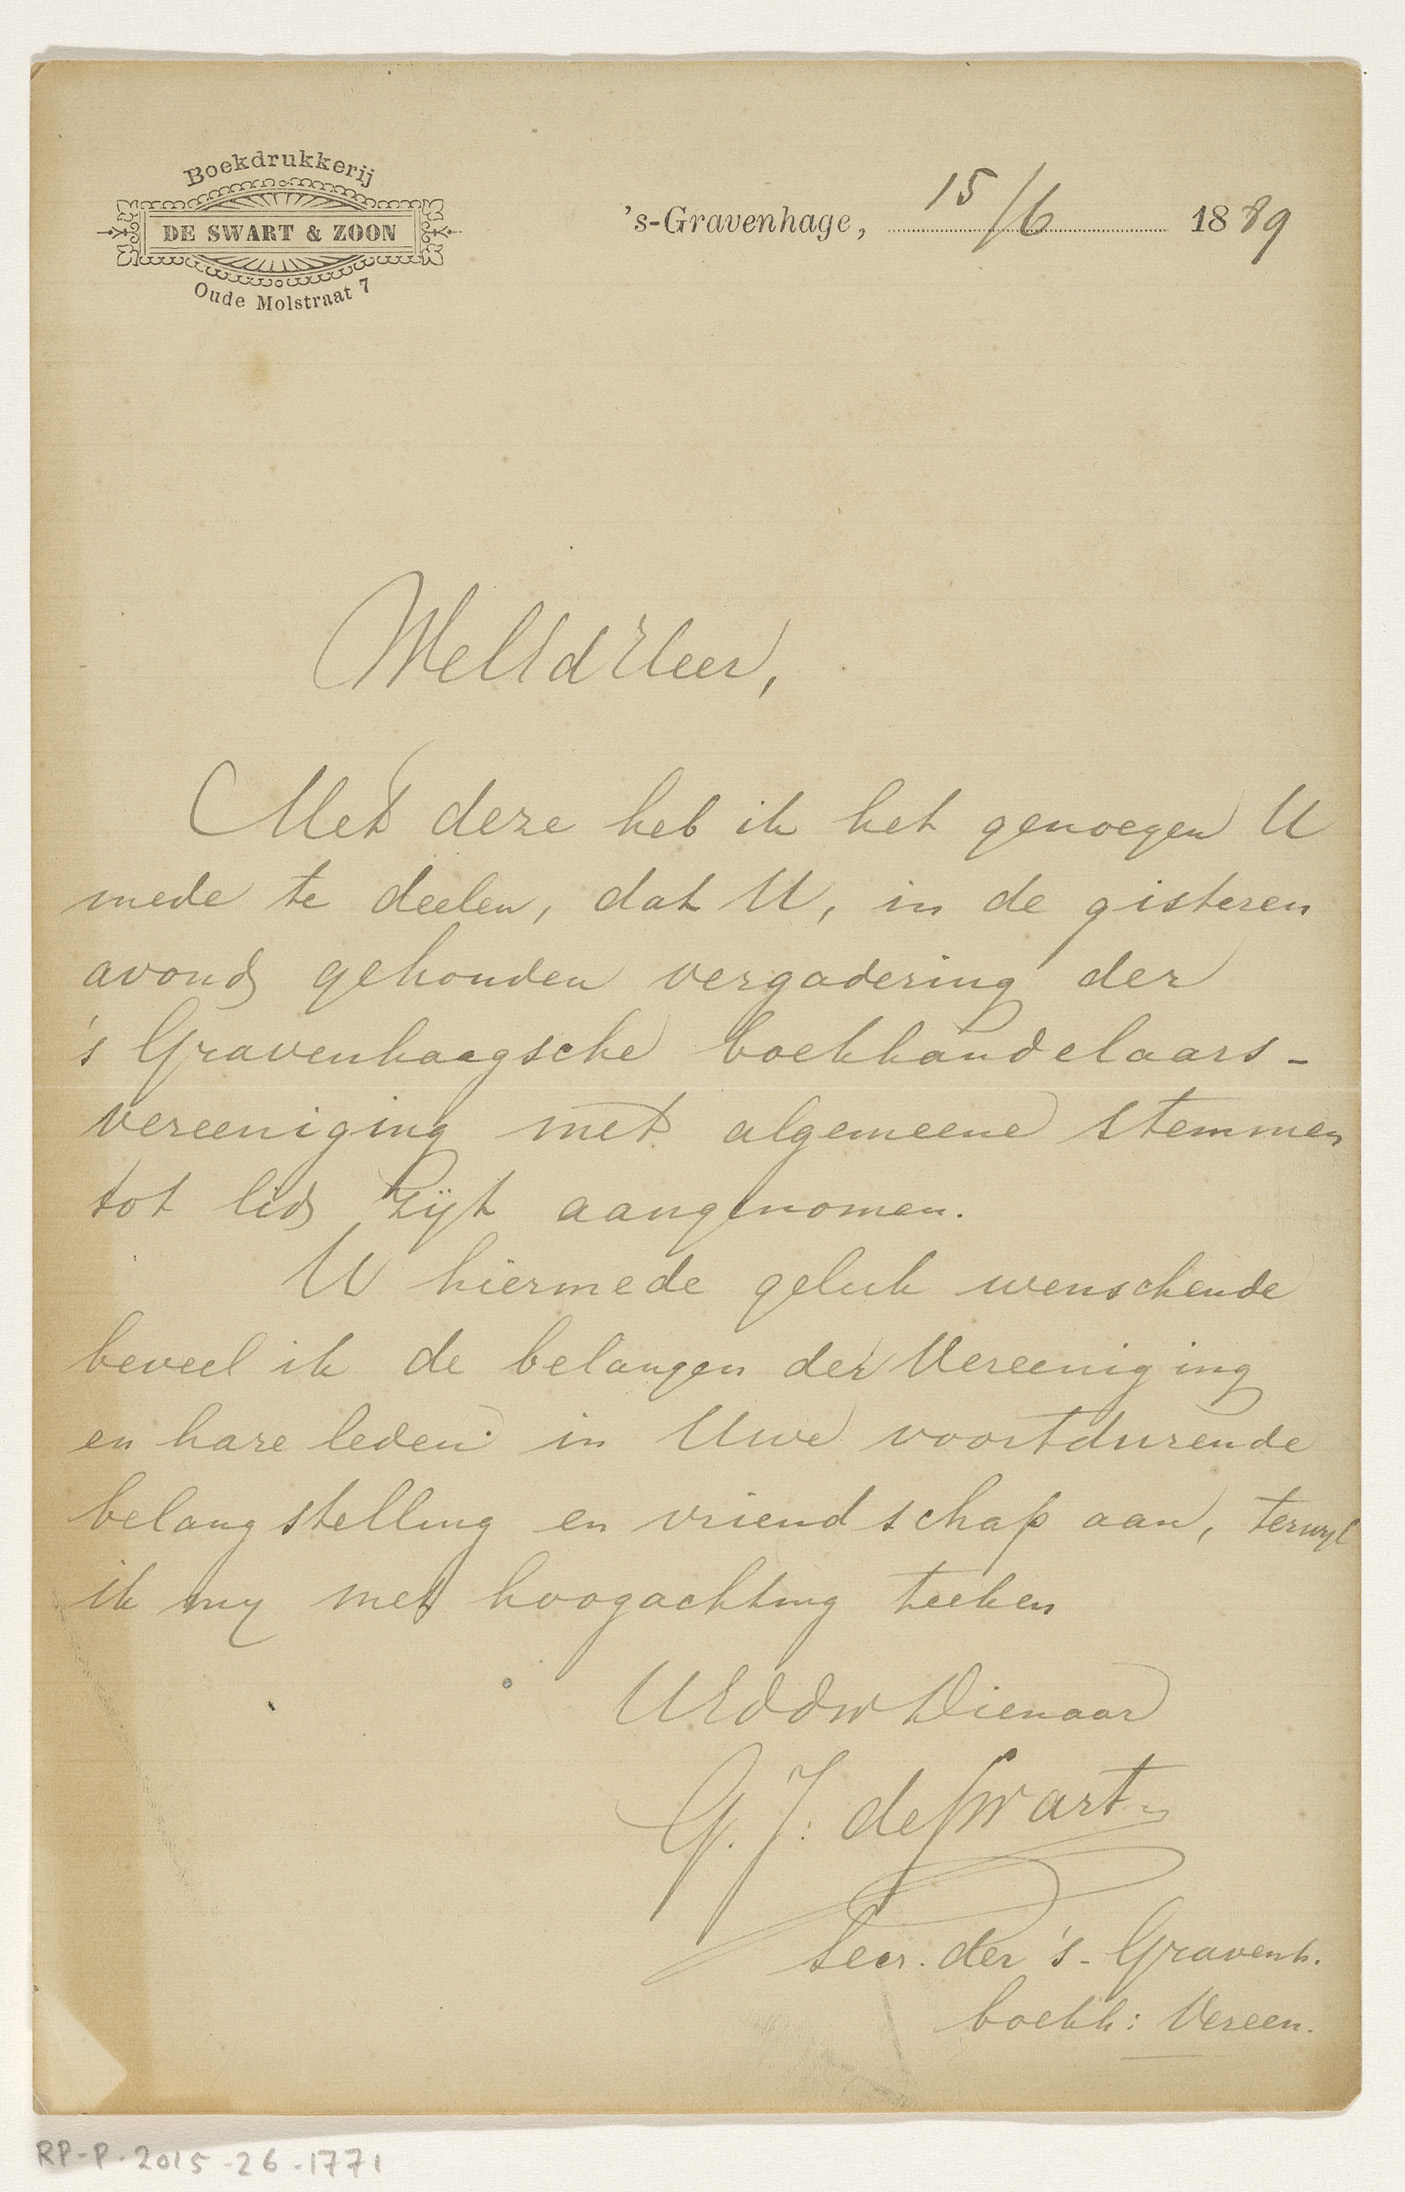 Boekdrukkerij
DE SWART & ZOON
Oude Molstraat 7
's-Gravenhage, 15/6 1889
WelEdHeer,
Met deze heb ik het genoegen U
mede te deelen, dat U, in de gisteren
avond gehouden vergadering der
's Gravenhaagsche boekhandelaars-
vereeniging met algemeene stemmen
tot lid zijt aangenomen.
U hiermede geluk wenschende
beveel ik de belangen der Vereeniging
en hare leden in Uwe voortdurende
belangstelling en vriendschap aan, terwyl
ik my met hoogachting teeken
UEddw Dienaar
G. J. de Swart
Secr. der 's-Gravenh.
boekh: Vereen.
RP-P-2015-26-1771